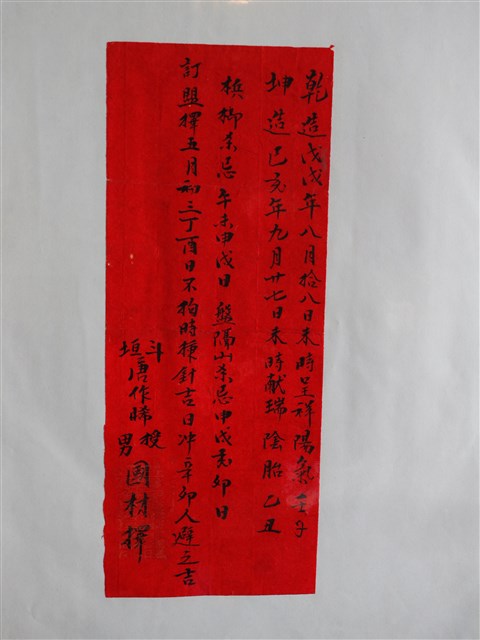 乾造戊戌年八月拾八日未時呈祥陽氣壬子
坤造己亥年九月廿七日未時献瑞陰胎乙丑
檳榔茶忌午未申戌日 盤隔山茶忌申戌亥卯日
訂盟擇五月初三丁酉日不拘時乗針吉日冲辛卯人避之吉
斗垣唐作晞授
男國材擇